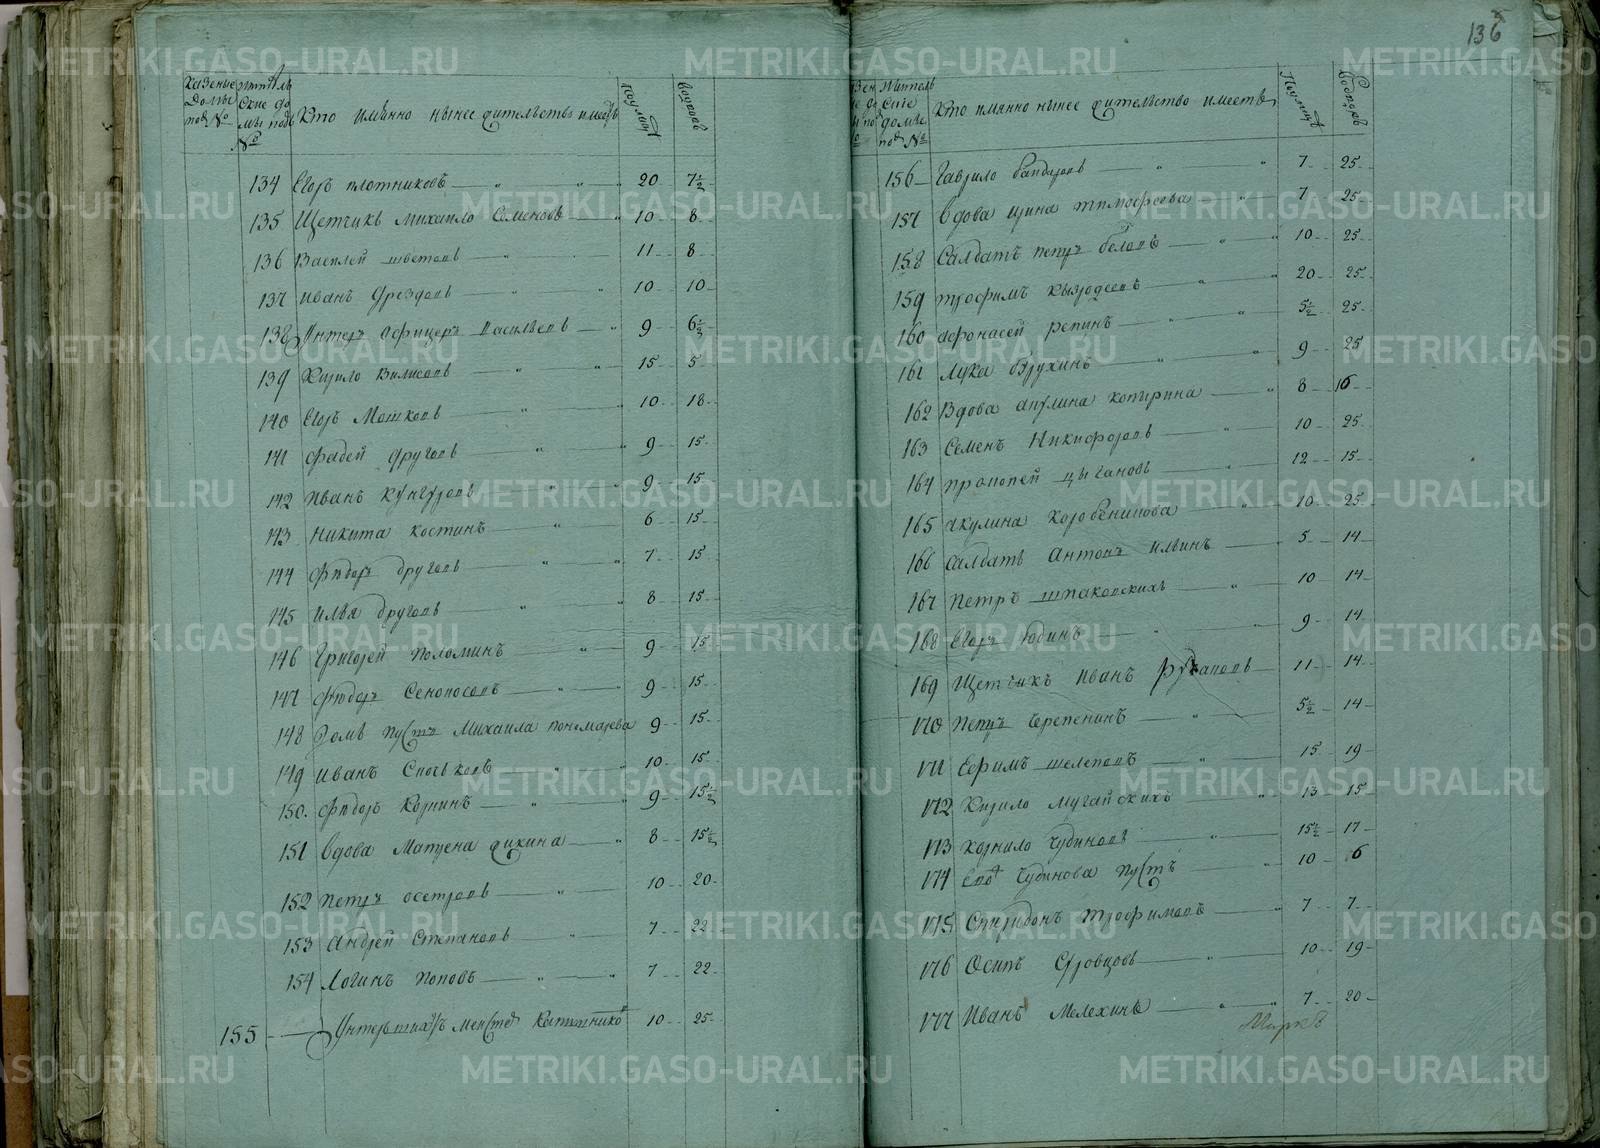 136
Казеные домы под №
Жительские домы под №
Кто имянно нынее жительство имеетъ
по улицѣ
во дворъ
134 Егоръ плотниковъ — 20 7½
135 Щетчикъ михаило Семеновъ — 10 8
136 Василей шветовъ — 11 8
137 иванъ Дрездовъ — 10 10
138 Унтеръ афицеръ Васильевъ — 9 6½
139 Кирило Вилисовъ — 15 5
140 Егоръ Мошковъ — 10 18
141 Фадей друговъ — 9 15
142 иванъ кунгуровъ — 9 15
143 никита костинъ — 6 15
144 Фѣдоръ друговъ — 7 15
145 илья друговъ — 8 15
146 Григорей поломинъ — 9 15
147 Фѣдоръ Сенопосовъ — 9 15
148 домъ пустъ Михаила пономарева 9 15
149 иванъ — 10 15
150. Фѣдоръ Корнинъ — 9 15½
151 вдова Матрена дикина — 8 15½
152 петръ осетровъ — 10 20
153 андрей Степановъ — 7 22
154 Логинъ поповъ — 7 22
155 — 10 25
Жительские домы под №
Кто имянно нынее жительство имеетъ
По улицѣ
Во дворъ
156 — Гаврило бандуровъ — 7 25
157 вдова ирина тимофеева — 7 25
158 Салдатъ петръ беловъ — 10 25
159 трофимъ — 20 25
160 афонасей репинъ — 5½ 25
161 лука брухинъ — 9 25
162 Вдова акулина копирина — 8 16
163 Семенъ Никифоровъ — 10 25
164 прокопей цыгановъ — 12 15
165 акулина коробеникова — 10 25
166 салдатъ антонъ ильинъ — 5 14
167 петръ шпаковскихъ — 10 14
168 Егоръ юдинъ — 9 14
169 Щетчикъ иванъ Русановъ — 11 14
170 петръ Черепенинъ — 5½ 14
171 Ефимъ шелеповъ — 15 19
172 Кирило мугайскихъ — 13 15
173 корнило Чудиновъ — 15½ 17
174 его Чудинова пустъ — 10 6
175 Спиридонъ трофимовъ — 7 7
176 Осипъ Суровцовъ — 10 19
177 Иванъ Мелехинъ — 7 20
Маркъ
METRIKI.GASO-URAL.RU